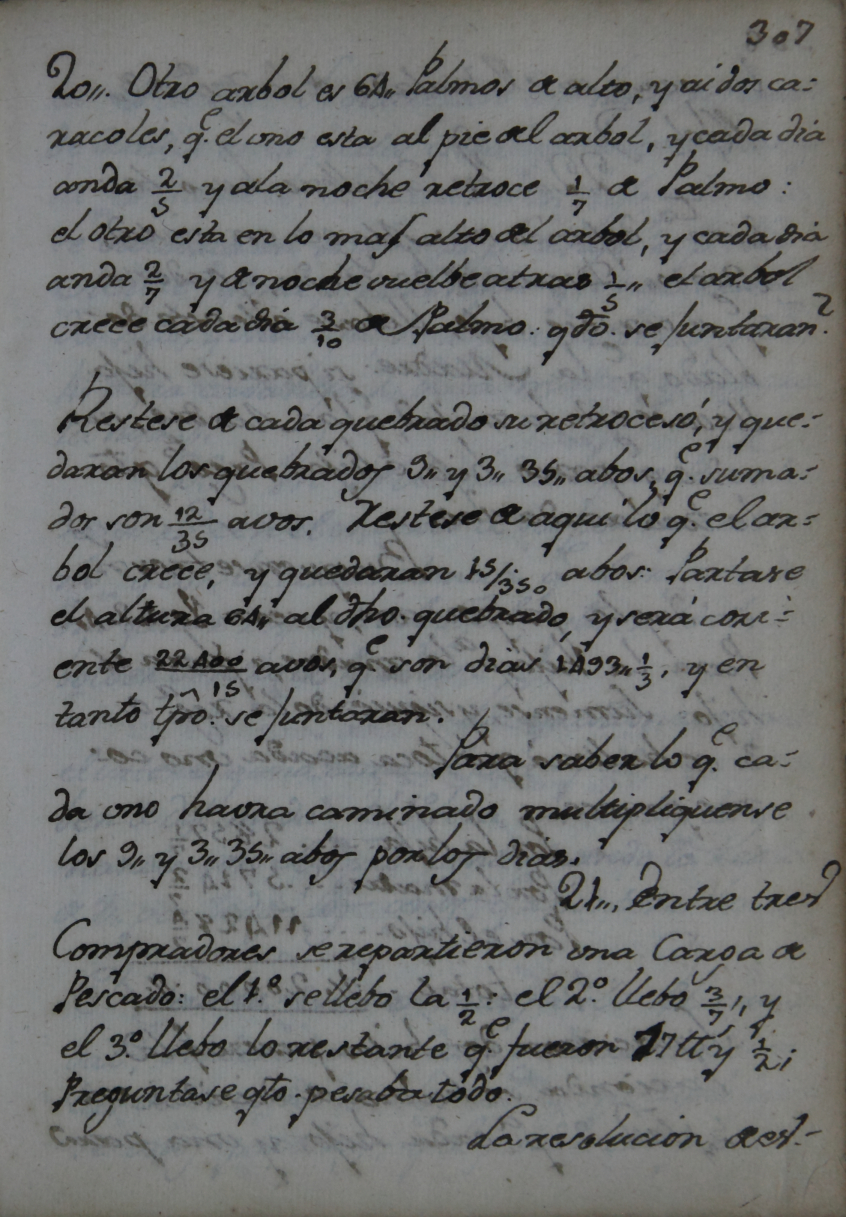 307
20,,. Otro arbol es 64,, Palmos de alto, y ai dos ca-
racoles, q.e el uno esta al pie del arbol, y cada dia
anda 2/5 y a la noche retroce 1/7 de Palmo:
el otro esta en lo mas alto del arbol, y cada dia
anda 2/7 y de noche vuelbe atras 1/5,, el arbol
crece cada dia 3/10 de Palmo. qdo. se juntaran?
Restese de cada quebrado su retroceso, y que-
daran los quebrados 9,, y 3,, 35,, abos, q.e suma-
dos son 12/35 avos. Restese de aqui lo q.e el ar-
bol crece, y quedaran 15/350 abos: Partase
el altura 64,, al dho. quebrado, y será cori-
ente 22400/15 avos, q.e son dias 1493,, 1/3, y en
tanto tpo. se juntaran.
Para saber lo q.e ca-
da uno havra caminado multipliquense
los 9,, y 3,, 35,, abos por los dias.
21,,. Entre tres
Compradores se repartieron una Carga de
Pescado: el 1.º se llebo la 1/2: el 2.º llebo 3/7,, y
el 3.º llebo lo restante q.e fueron 17 tt y 1/2;
Preguntase qto. pesaba todo.
La resolucion de es-